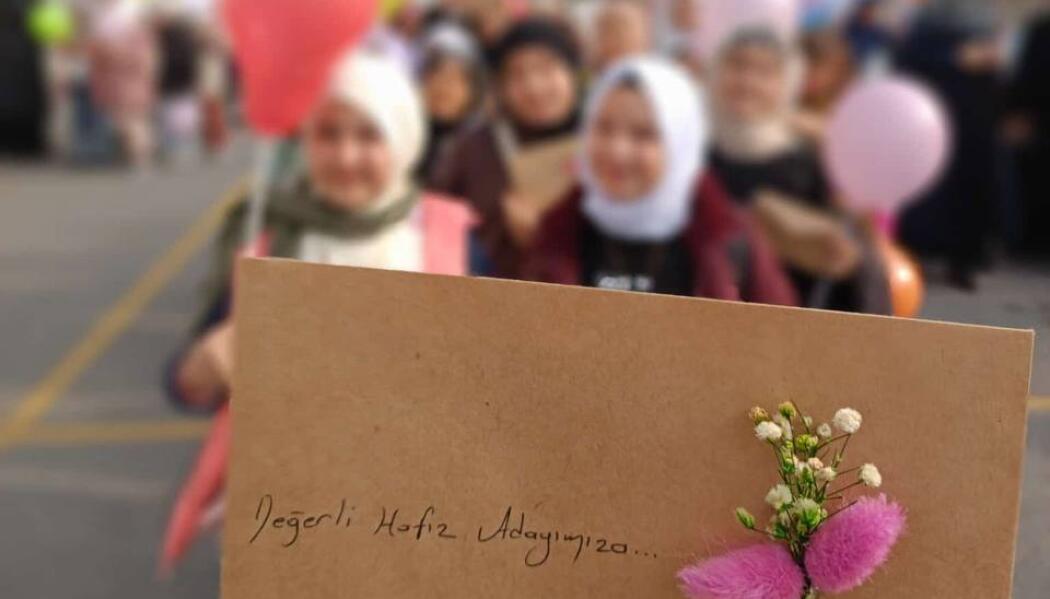 Değerli Hafız Adayımıza...